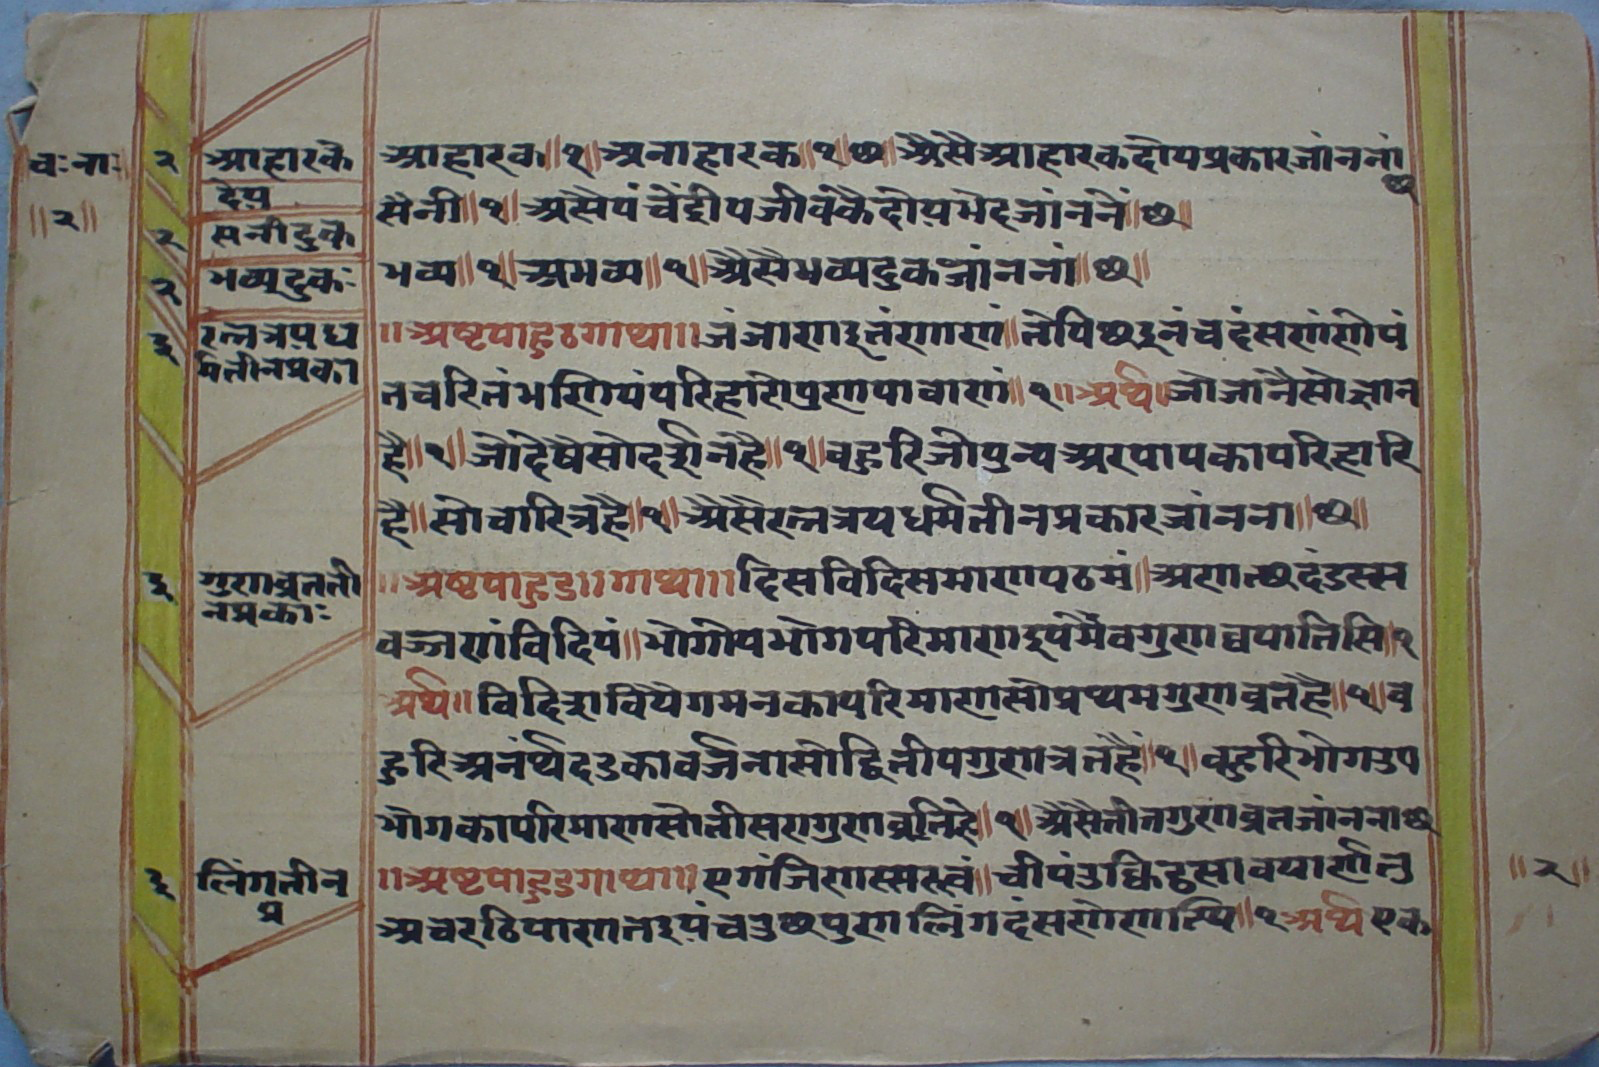 चःनाः
॥२॥
२ आहारके
देय
२ सनीदुक
२ भव्यदुकः
३ रत्नत्रयध
र्मतीनप्रका
३ गुणव्रतती
नप्रकाः
३ लिंगतीन
प्र
आहारक॥१॥अनाहारक॥१॥छ॥अैसैआहारकदोयप्रकारजांननां छ
सैनी॥१॥असैयंचेंद्रीयजीवकैदोयभेदजांननें॥छ॥
भव्य॥१॥अभव्य॥१॥अैसैभव्यदुकजांननां॥छ॥
॥अष्टपाहुठगाथा॥जंजाणइतंणाणं॥तेपिछइतंचदंसणंणेयं
तचरितंभणियंपरिहारोपुणपावाणं॥१॥अर्थ॥जोजांनैसोज्ञान
है॥१॥जोदेषैसोदर्शनहै॥१॥बहुरिजोपुन्यअरपापकापरिहारि
है॥सोचारित्रहै॥१॥अैसैरत्नत्रयधर्मतीनप्रकारजांनना॥छ॥
॥अष्टपाहुड॥गाथा॥दिसविदिसमाणपठमं॥अणत्थदंडस्स
वज्जणंविदियं॥भोगोपभोगपरिमाणइयमेवगुणवयातिसि॥१
अर्थ॥विदिशाविषैगमनकापरिमाणसोप्रथमगुणव्रतहै॥१॥ब
हुरिअनंर्थदडकावर्जनासोद्वितीयगुणव्रतहैं॥१॥बहुरिभोगउप
भोगकापरिमाणसोतीसरागुणव्रतिहै॥१॥अैसैतीनगुणव्रतजांनना॥छ
॥अष्टपाहुडगाथा॥एगंजिणस्सरूवं॥वीयंउक्किठसावयाणंतु
अवरठियाणतइयंचउछपुणलिंगदंसणोणत्थि॥१अर्थएक
॥२॥